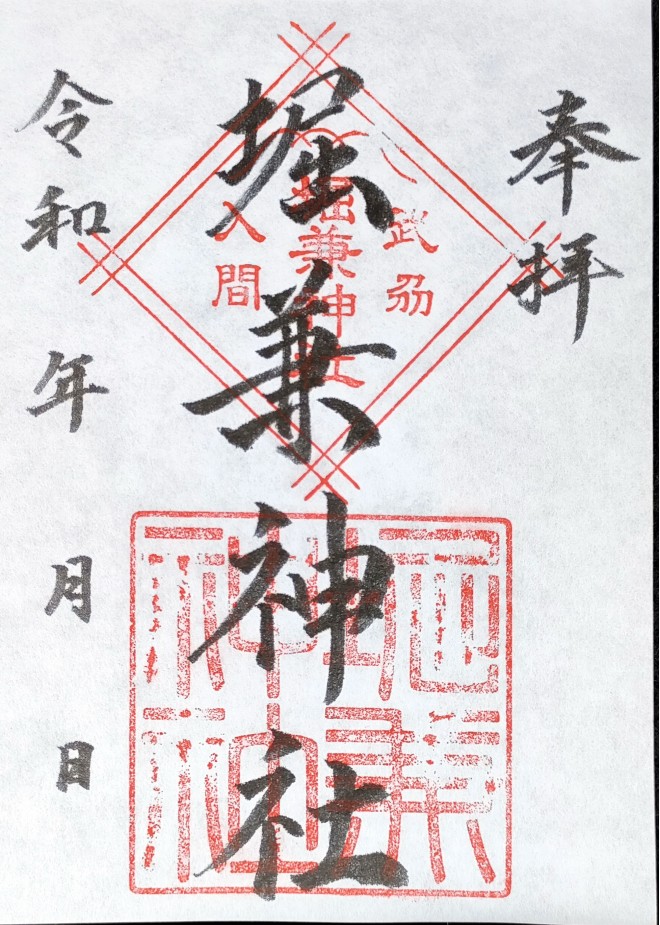 奉拝
武刕
堀兼神社
入間
堀兼神社
堀兼神社
令和 年 月 日